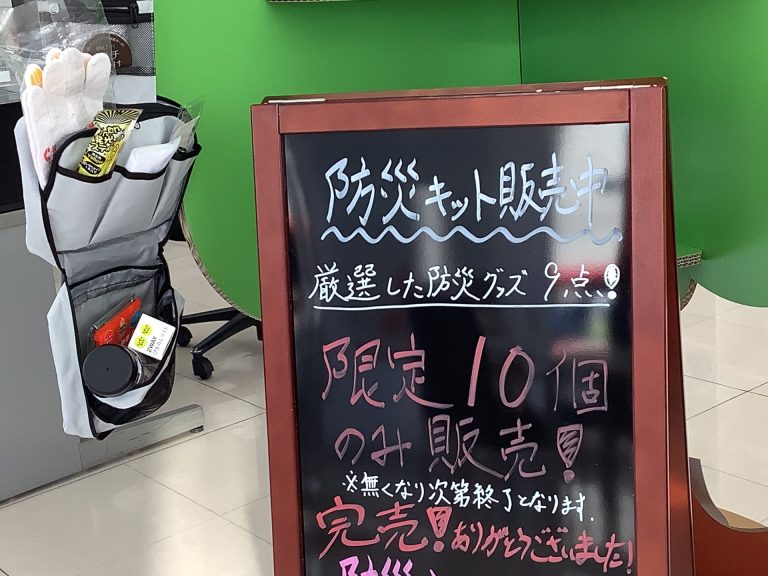 防災キット販売中
厳選した防災グッズ 9点!
限定10個
のみ販売!
※無くなり次第終了となります.
完売!ありがとうございました!
防災
2WAY